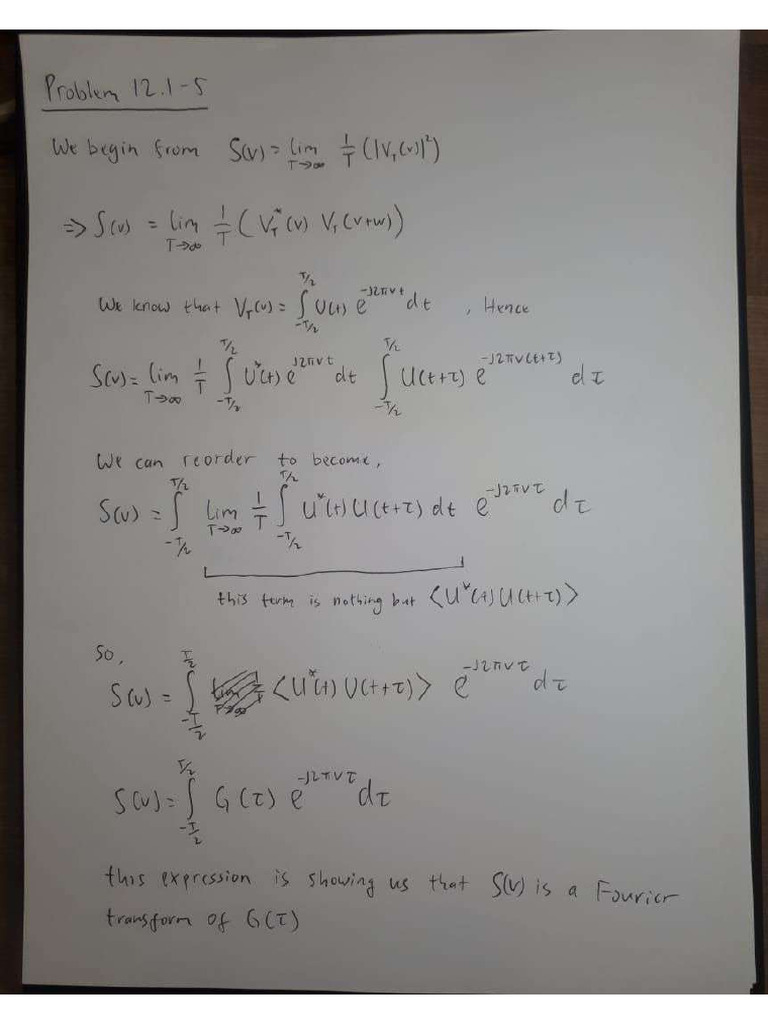 Problem 12.1-5
We begin from S(v) = lim T→∞ 1/T (|V_T(v)|²)
⇒ S(v) = lim T→∞ 1/T (V_T*(v) V_T(v+w))
We know that V_T(v) = ∫_{-T/2}^{T/2} U(t) e^{-j2πvt} dt , Hence
S(v) = lim T→∞ 1/T ∫_{-T/2}^{T/2} U*(t) e^{j2πvt} dt ∫_{-T/2}^{T/2} U(t+τ) e^{-j2πv(t+τ)} dτ
We can reorder to become,
S(v) = ∫_{-T/2}^{T/2} lim T→∞ 1/T ∫_{-T/2}^{T/2} U*(t) U(t+τ) dt e^{-j2πvτ} dτ
this term is nothing but ⟨U*(t) U(t+τ)⟩
So,
S(v) = ∫_{-T/2}^{T/2} ⟨U*(t) U(t+τ)⟩ e^{-j2πvτ} dτ
S(v) = ∫_{-T/2}^{T/2} G(τ) e^{-j2πvτ} dτ
this expression is showing us that S(v) is a Fourier
transform of G(τ)